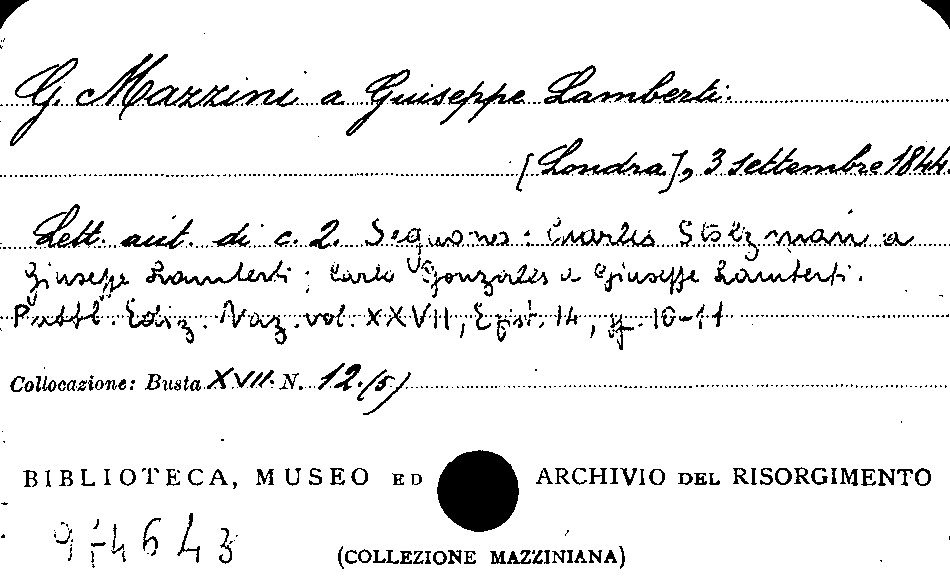 G. Mazzini a Guiseppe Lamberti.
[Londra], 3 settembre 1844.
Lett. aut. di c. 2. Seguono: Charles Stolzman a
Giuseppe Lamberti; Carlo Gonzales a Giuseppe Lamberti.
Pubbl. Ediz. Naz. vol. XXVII, Epist. 14, pp. 10-11
Collocazione: Busta XVII. N. 12.(5)
BIBLIOTECA, MUSEO ED ARCHIVIO DEL RISORGIMENTO
(COLLEZIONE MAZZINIANA)